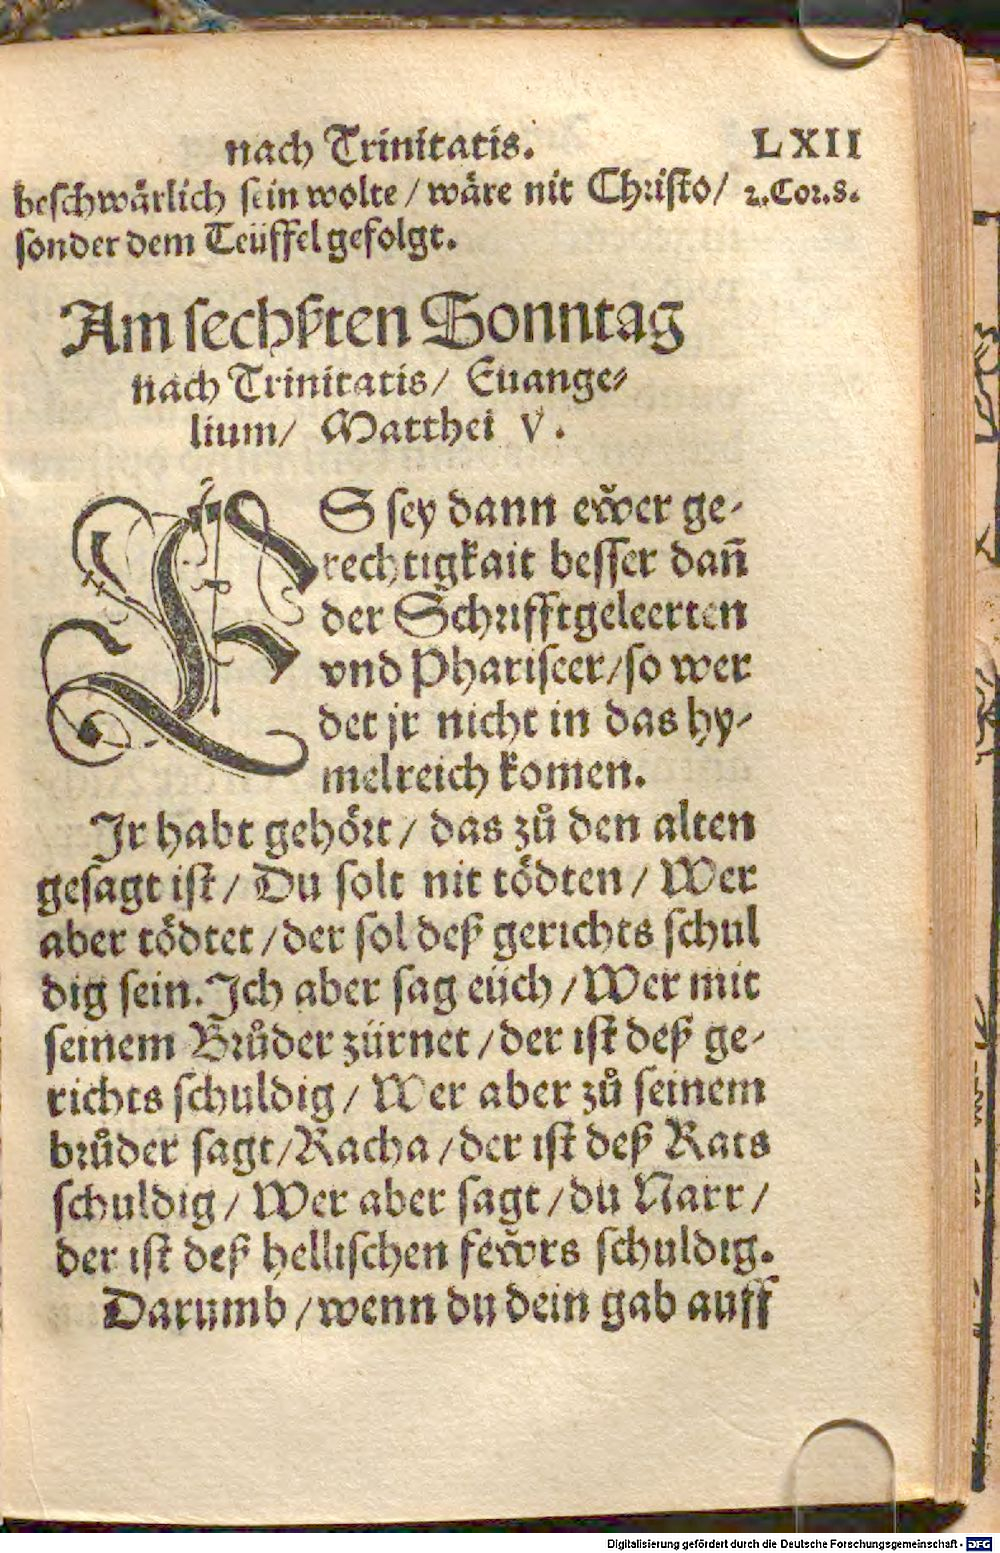 nach Trinitatis. LXII
beschwärlich sein wolte / wäre nit Christo / 2. Cor. 8.
sonder dem Teüffel gefolgt.
Am sechßten Sonntag
nach Trinitatis / Euange⸗
lium / Matthei V.
ES sey dann ewͤer ge⸗
rechtigkait besser dañ
der Schrifftgeleerten
vnd Phariseer / so wer
det jr nicht in das hy⸗
melreich komen.
Jr habt gehört / das zů den alten
gesagt ist / Du solt nit tödten / Wer
aber tödtet / der sol deß gerichts schul
dig sein. Ich aber sag eüch / Wer mit
seinem Brůder zürnet / der ist deß ge⸗
richts schuldig / Wer aber zů seinem
brůder sagt / Racha / der ist deß Rats
schuldig / Wer aber sagt / du Narr /
der ist deß hellischen fewͤrs schuldig.
Darumb / wenn du dein gab auff
Digitalisierung gefördert durch die Deutsche Forschungsgemeinschaft - DFG